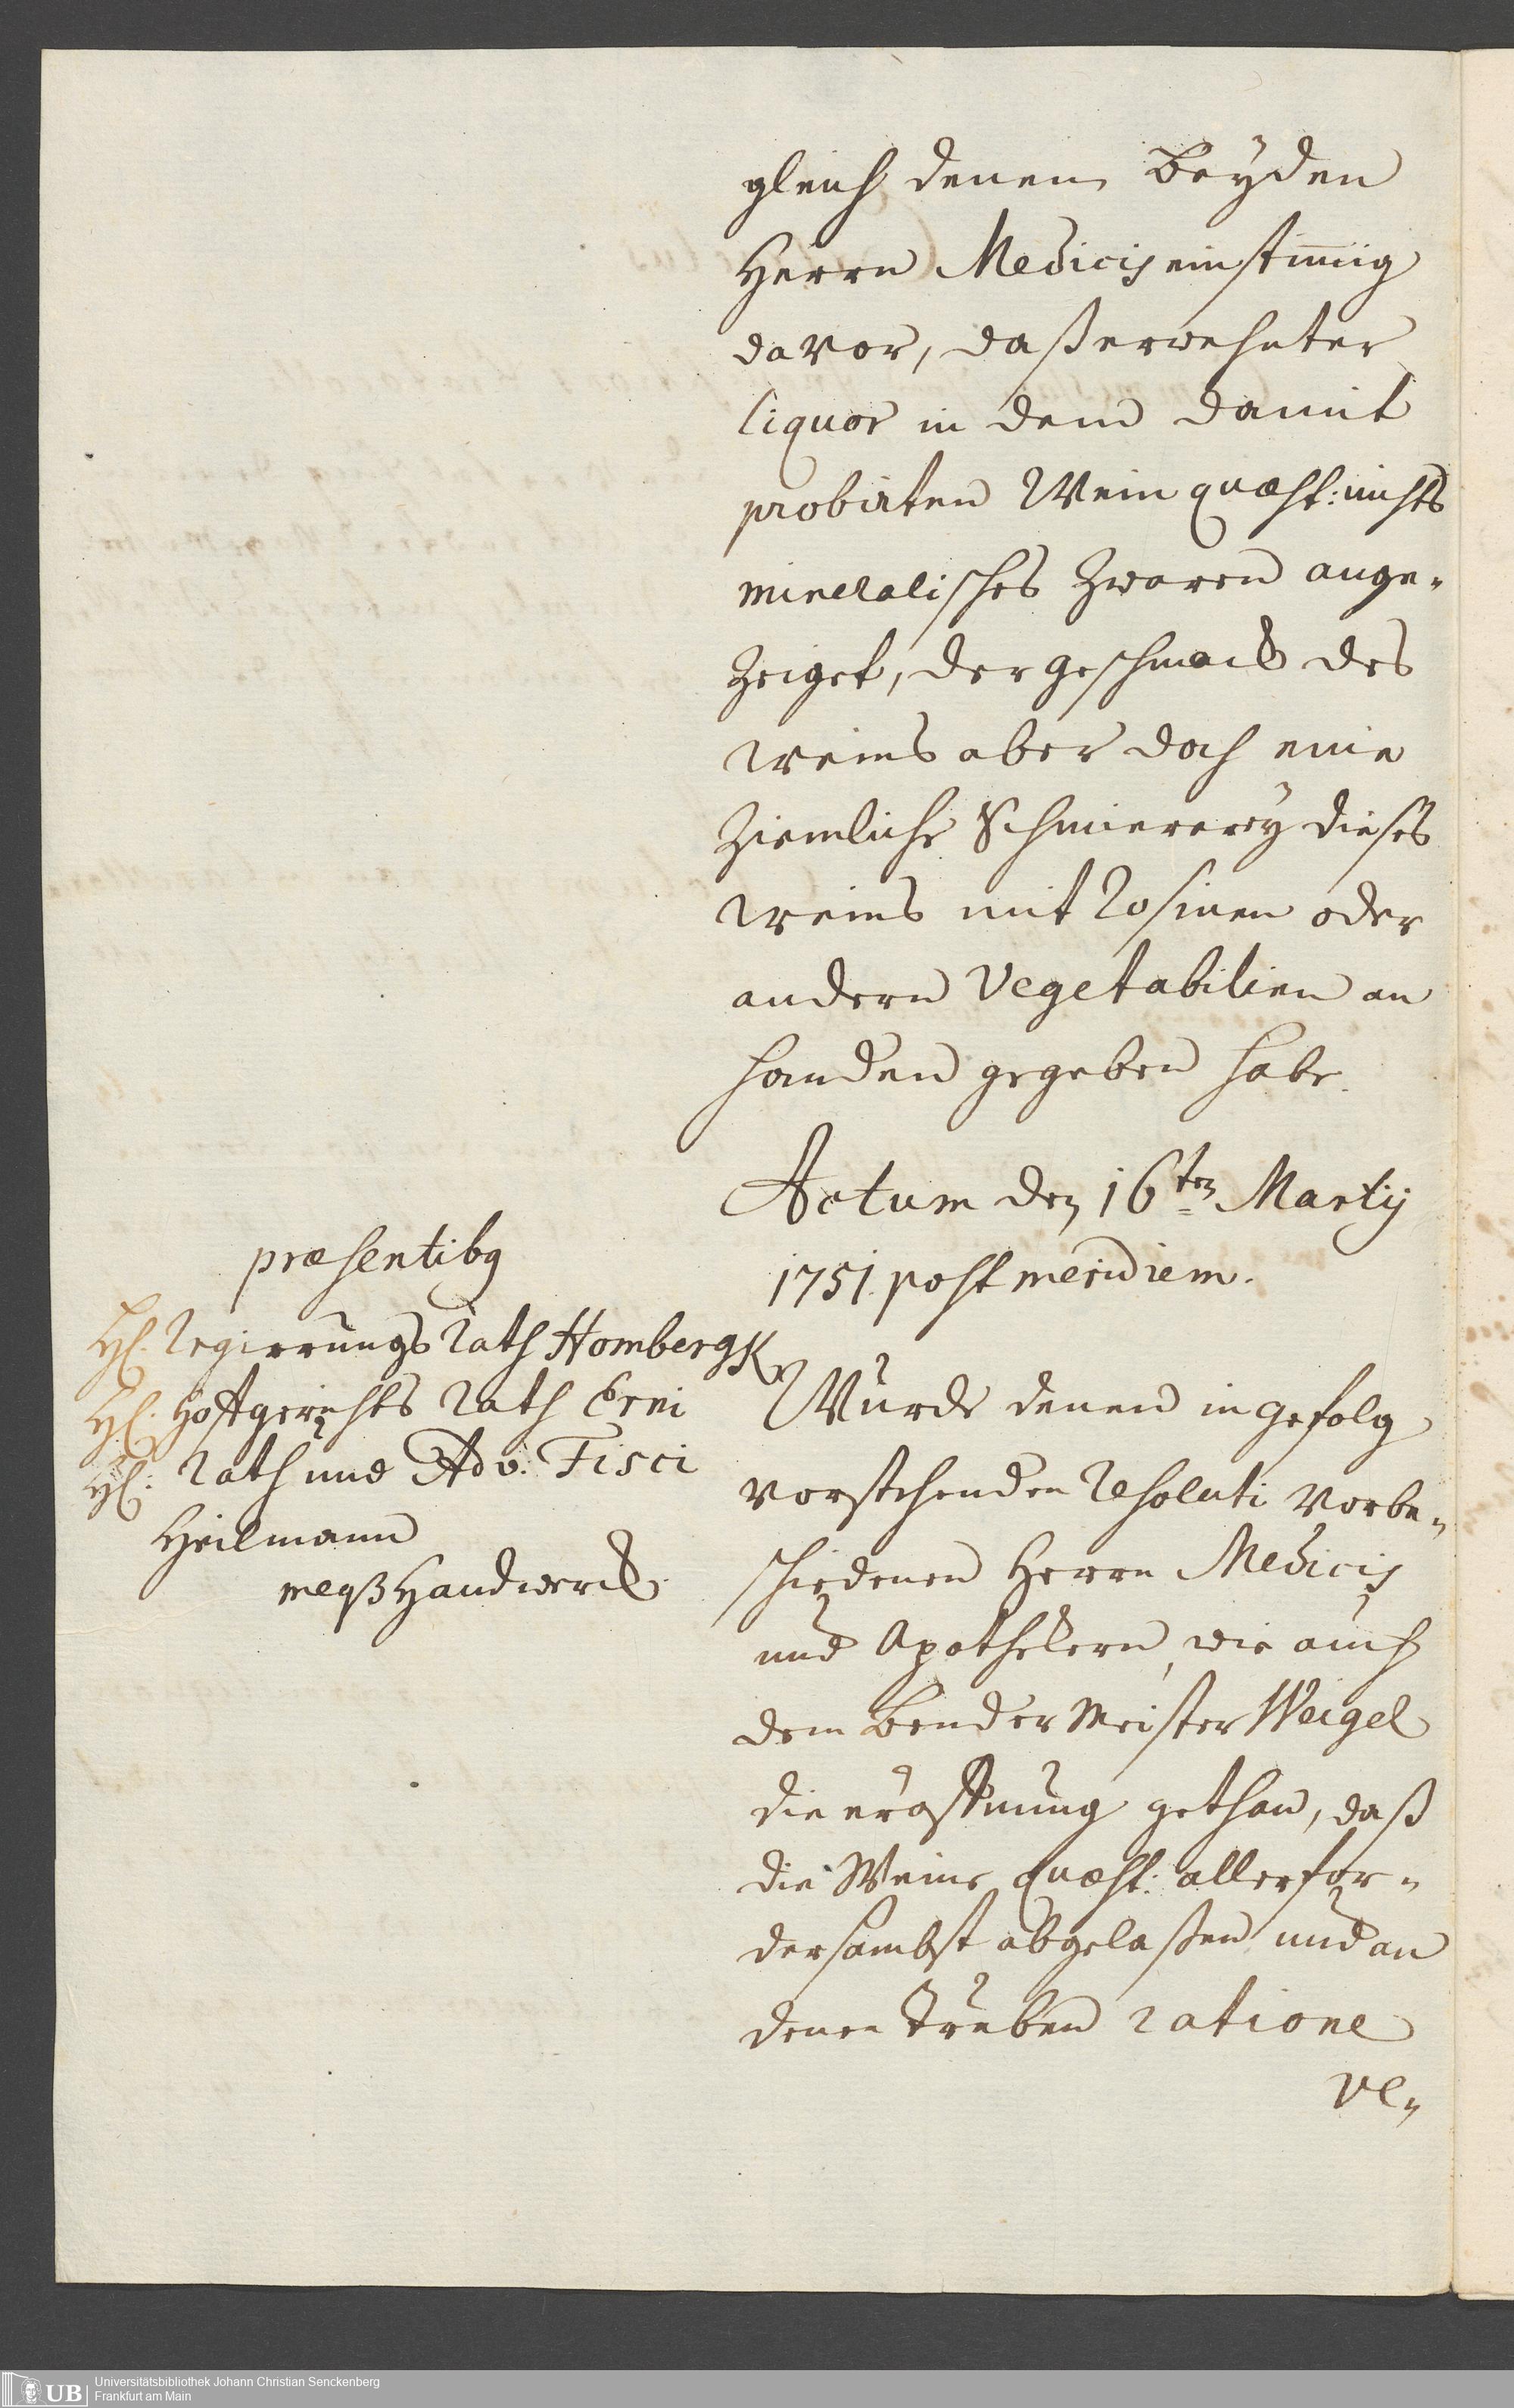 gleich denen beyden
Herrn Medicis einstim̄ig
davor, daß erwehnter
liquor in dem damit
probirten Wein quæst: nichts
mineralisches zwaren ange-
zeiget, der geschmack des
weins aber doch eine
ziemliche Schmiererey dieses
weins mit Rosinen oder
andern Vegetabilien an
handen gegeben habe.
Actum den 16ten Martij
1751. post meridiem.
præsentibus
H. Regierungs Rath Hombergk
H. Hoffgerichts Rath
H. Rath und Adv. Fisci
Heilmann
meque Handwerck.
Wurde denen in gefolg
vorstehenden Resoluti vorbe-
schiedenen Herrn Medicis
und Apothekern, wie auch
dem Bender Meister Weigel
die eröffnung gethan, daß
die Weine quæst: allerfor-
dersambst abgelaßen und an
denen Trüben ratione
ve-
Universitätsbibliothek Johann Christian Senckenberg
Frankfurt am Main
UB